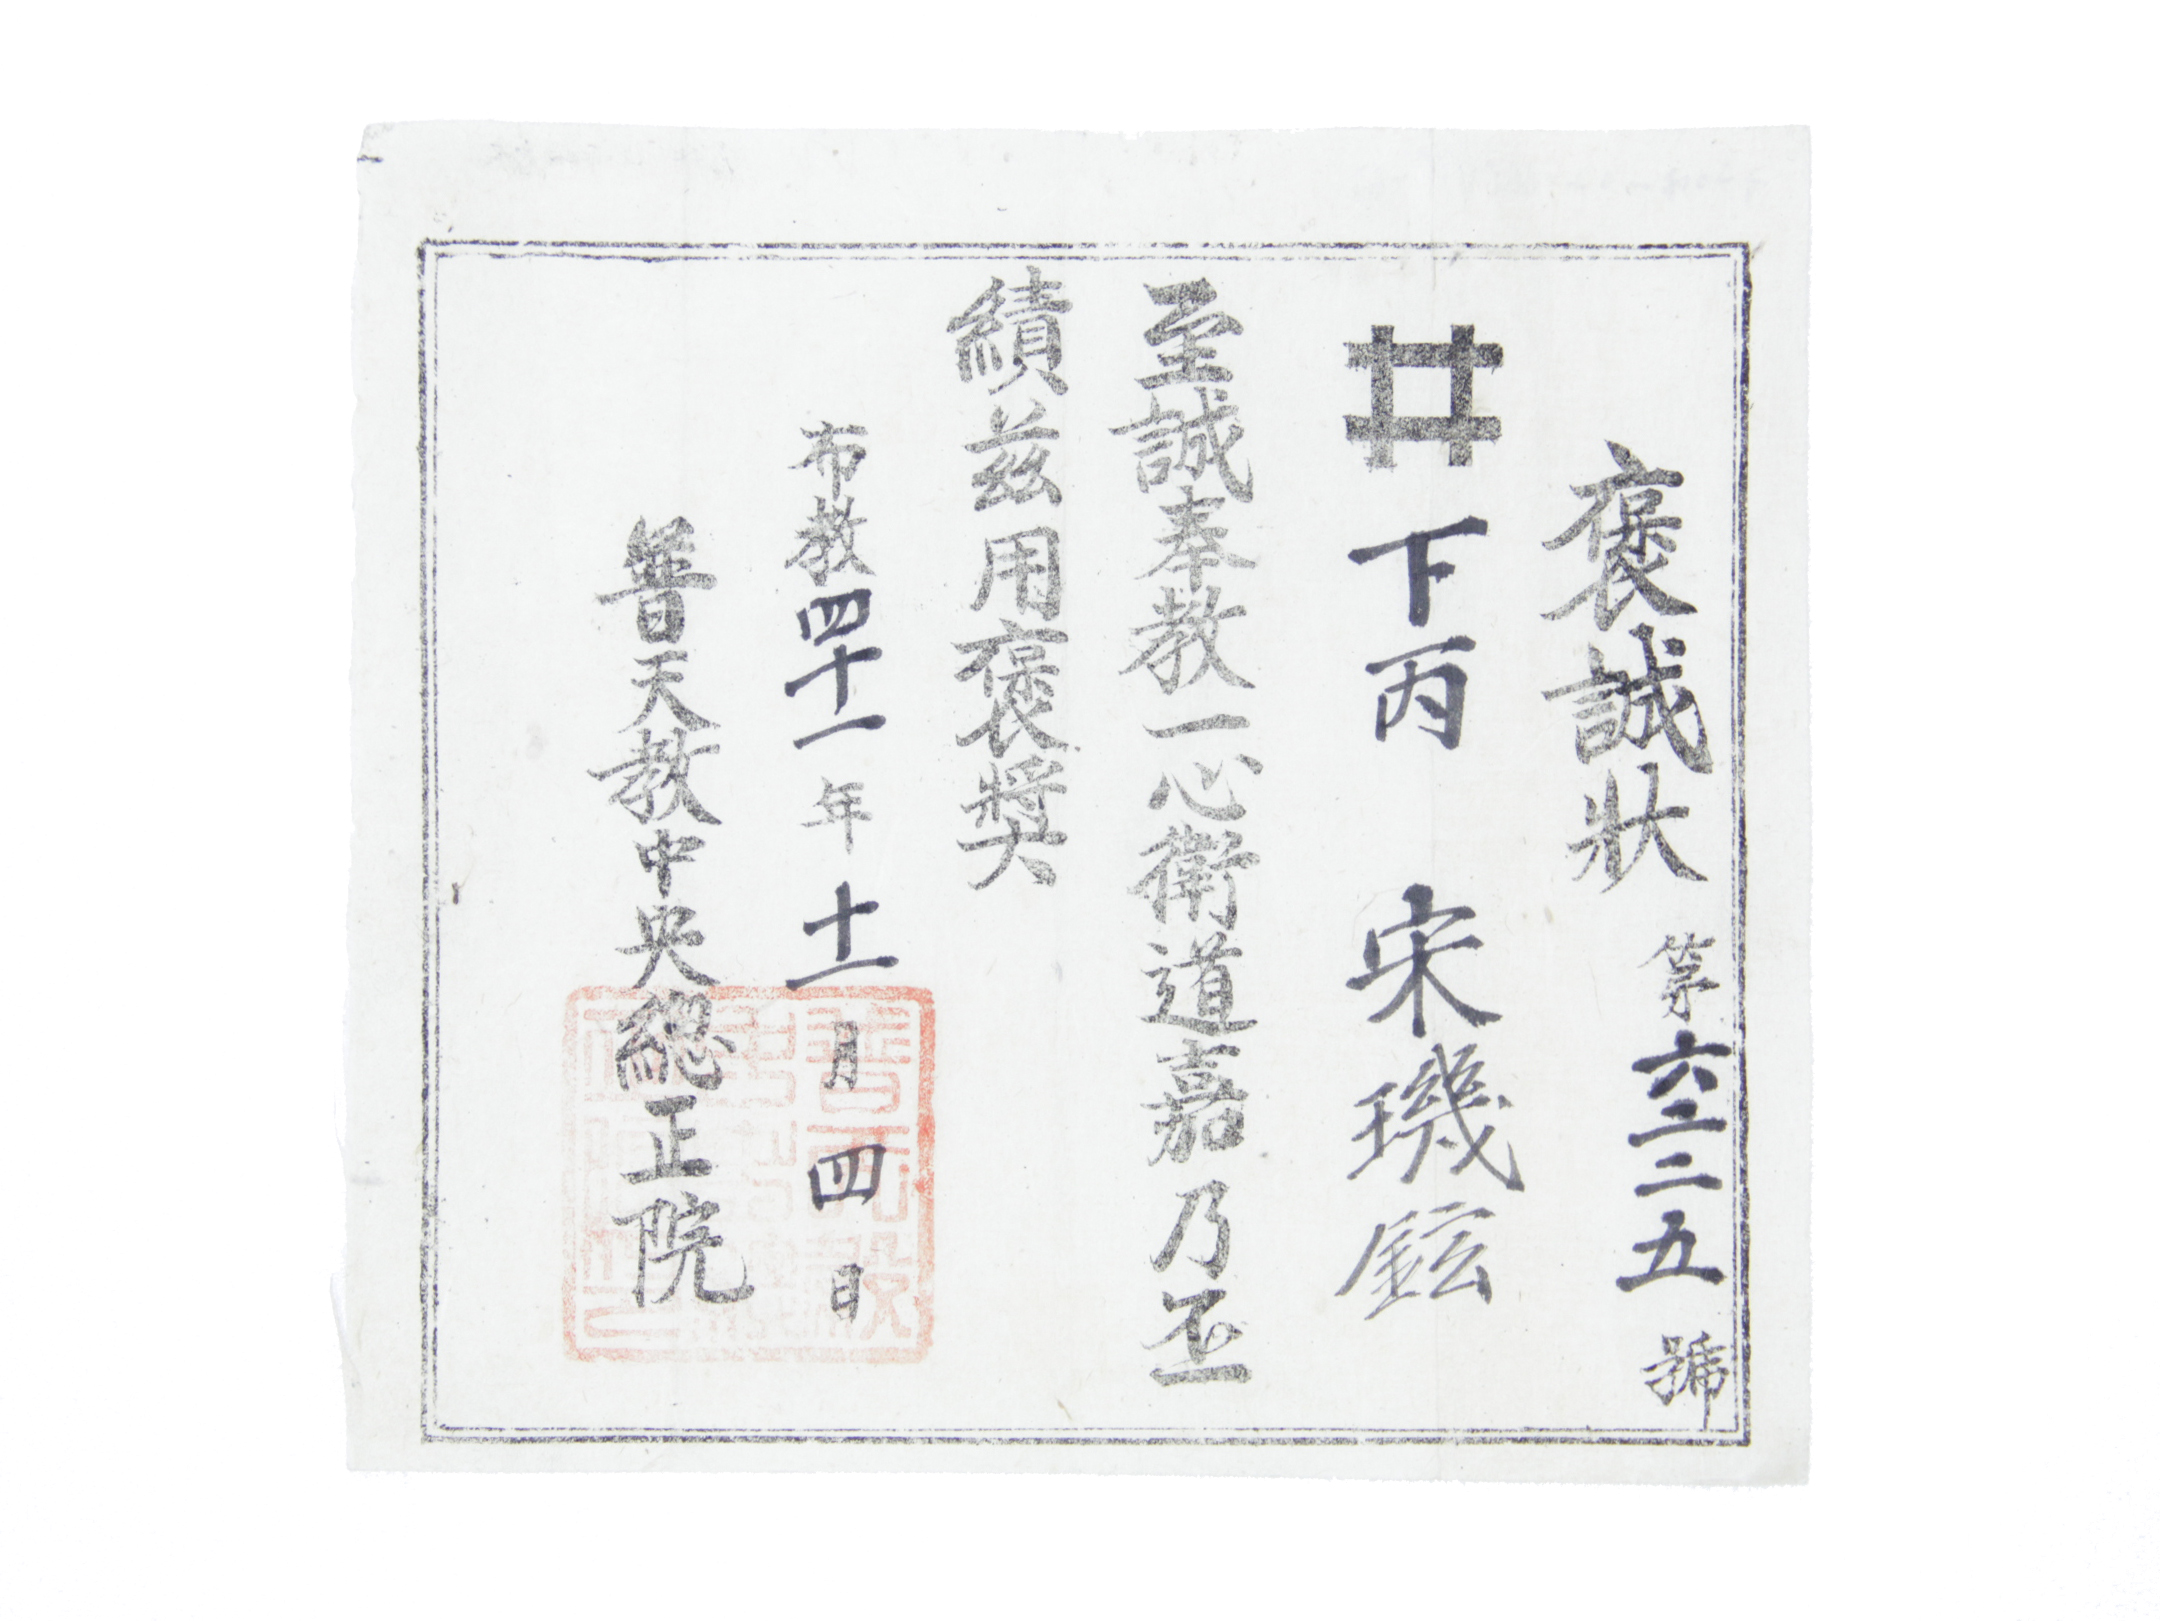 褒誠狀 第六二二五號
井 下丙 宋璣鉉
至誠奉教一心衛道嘉乃丕
績茲用褒獎
布教四十一年十一月四日
普天教中央總正院